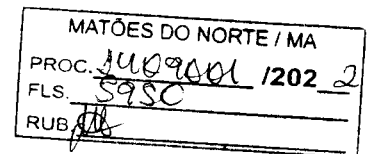 MATÕES DO NORTE / MA
PROC. 1409001 /2022
FLS. 5950
RUB.